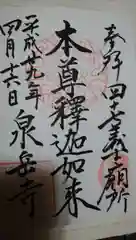 奉拜 四十七義士願所
本尊釋迦如来
平成廿九年
四月十六日
泉岳寺